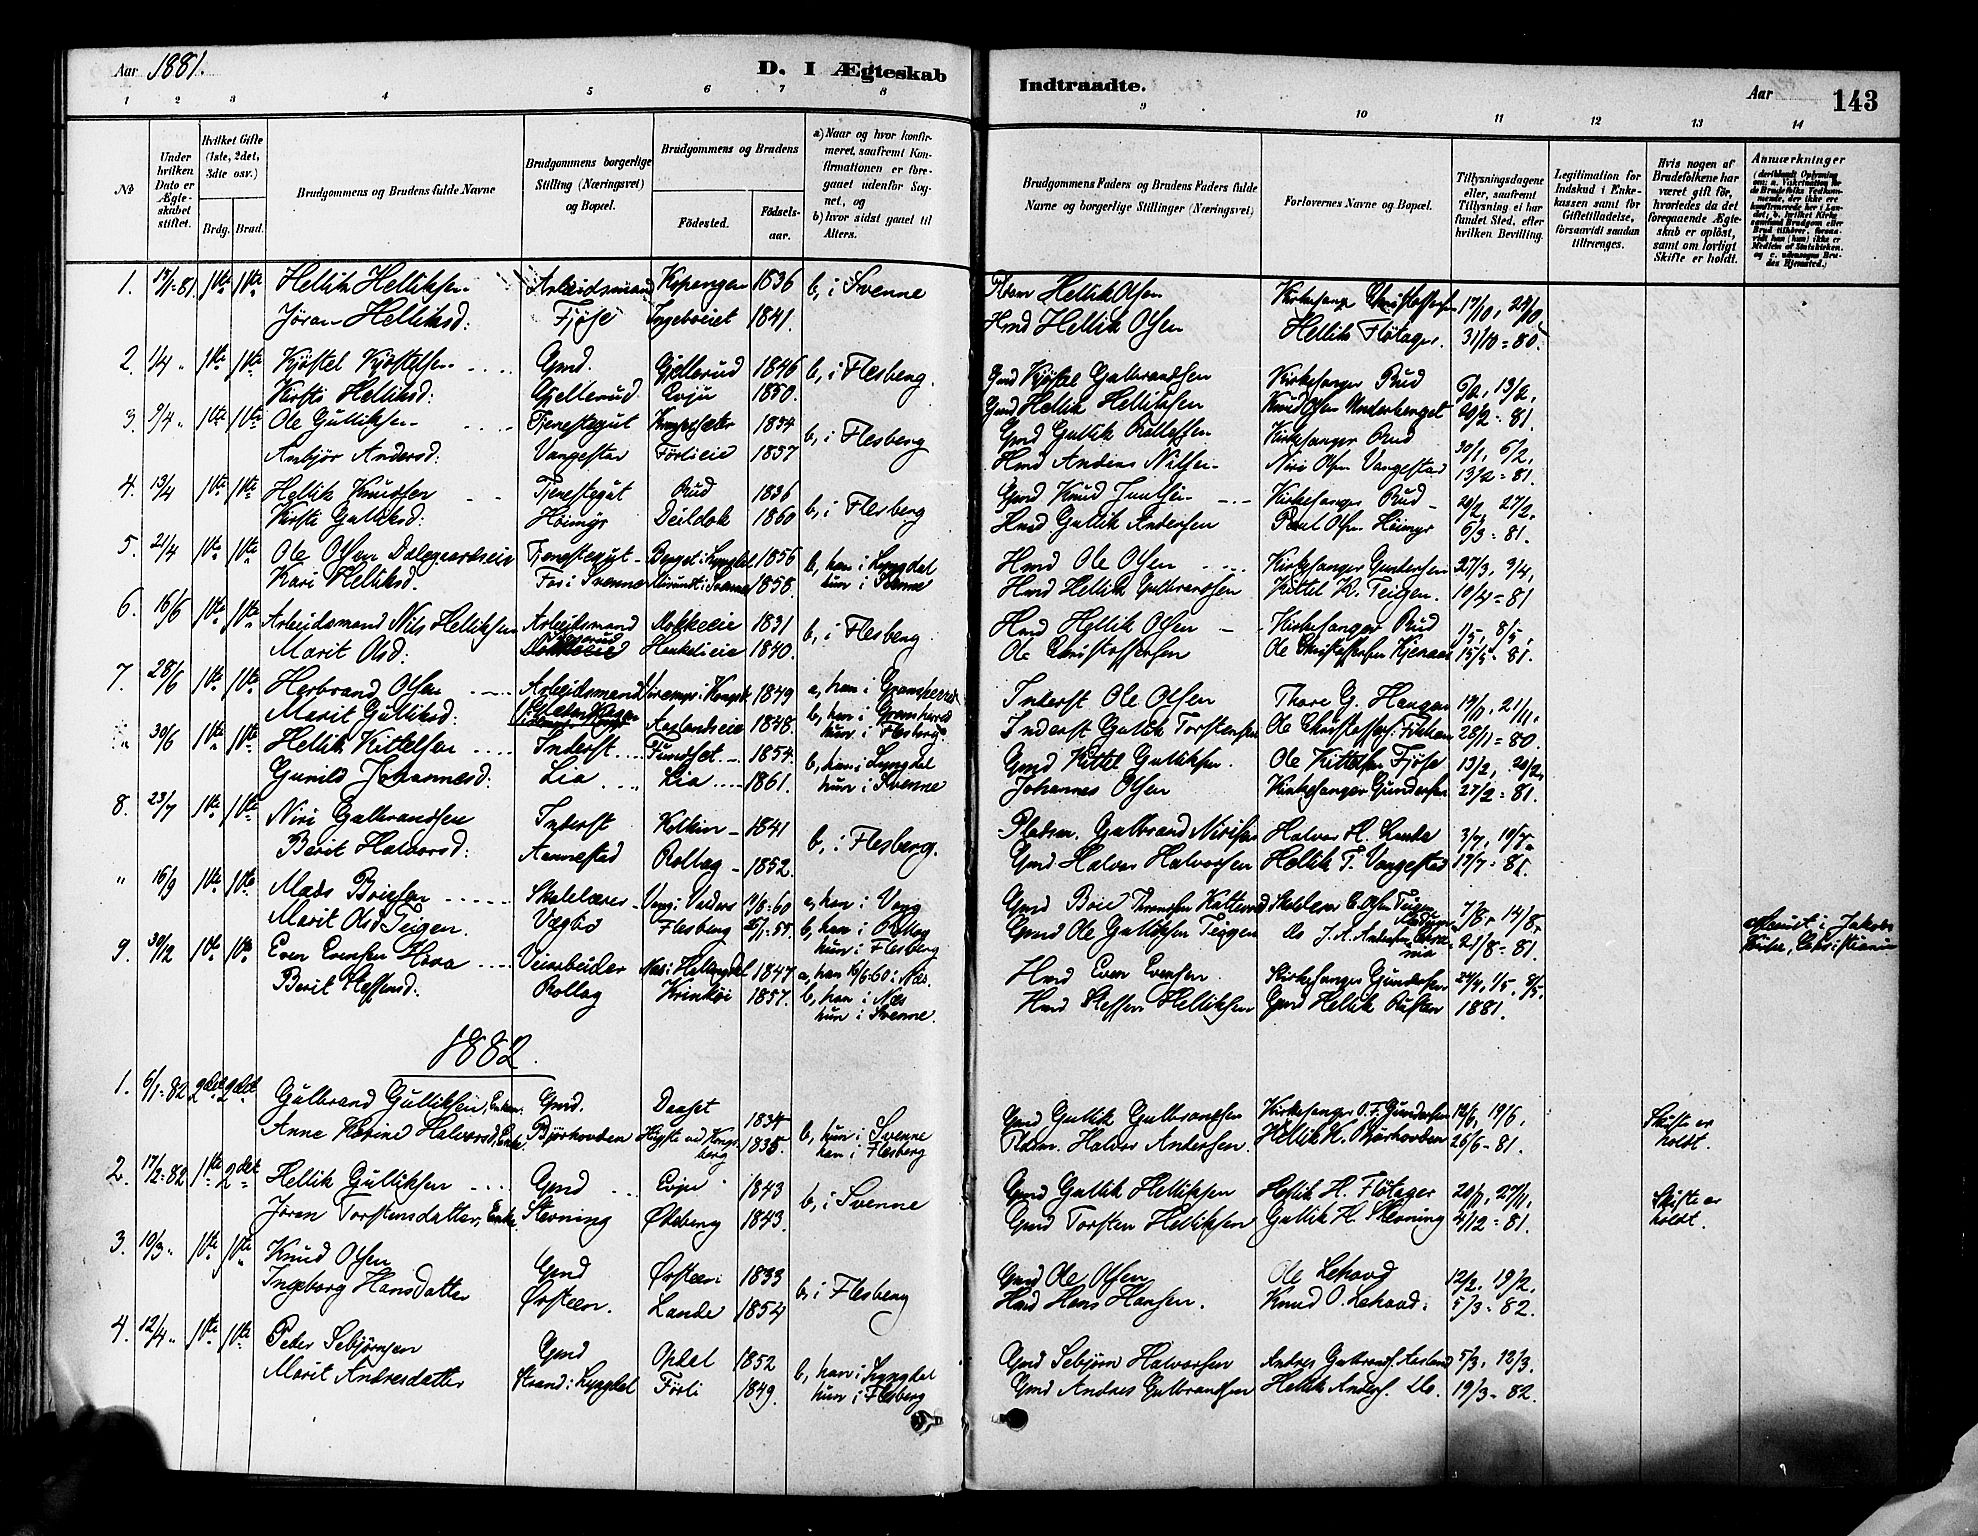 Aar 1881.
D. I Ægteskab Indtraadte.
Aar
143
1 2 3 4 5 6 7 8 9 10 11 12 13 14
No
Under hvilken Dato er Ægteskabet stiftet.
Hvilket Gifte (1ste, 2det, 3die osv.)
Brdg. Brud.
Brudgommens og Brudens fulde Navne
Brudgommens borgerlige Stilling (Næringsvei) og Bopæl.
Brudgommens og Brudens
Fødested.
Fødselsaar.
a) Naar og hvor konfirmeret, saafremt Konfirmationen er foregaaet udenfor Sognet, og
b) hvor sidst gaaet til Alters.
Brudgommens Faders og Brudens Faders fulde Navne og borgerlige Stillinger (Næringsvei)
Forlovernes Navne og Bopæl.
Tillysningsdagene eller, saafremt Tillysning ei har fundet Sted, efter hvilken Bevilling.
Legitimation for Indskud i Enkekassen samt for Giftetilladelse, forsaavidt saadan tiltrænges.
Hvis nogen af Brudefolkene har været gift før, hvorledes da det foregaaende Ægteskab er opløst, samt om lovligt Skifte er holdt.
Anmærkninger
1. 17/1 81. 1ste 1ste Hellik Helliksen Arbeidsmand Kopangen 1836 b, i Svenne Hellik Olsen Kirkesanger Christoffersen 17/10, 24/10
Jøran Helliksd: Fjøse Ingeboeiet 1841. Hmd Hellik Olsen Hellik Fløtager. 31/10=80.
2. 1/4 " 1ste 1ste Kjøstel Kjøstelsen Gmd. Gjellerud 1846 b, i Flesberg. Gmd Kjøstel Gulbrandsen Kirkesanger Rud 6/2, 13/2,
Kirsti Helliksd: Gjellerud Evju 1850. Gmd Hellik Helliksen Knud Olsen Underberget 20/2 = 81.
3. 9/4 " 1ste 1ste Ole Gulliksen Tjenestegut 1834 b, i Flesberg Gmd Gullik Kirkesanger Rud 30/1, 6/2,
Anbjør Andersd: Vangestad Førlieie 1837 Hmd Anders Nilsen Niri Olsen Vangestad 13/2=81.
4. 13/4 1ste 1ste Hellik Knudsen Tjenestegut Rud 1836 b, i Flesberg Gmd Knud Juulsen Kirkesanger Rud 20/2, 27/2,
Kirsti Gulliksd: Høimyr Deildok 1860 Hmd Gullik Andersen Paul Olsen Høimyr 6/3=81.
5. 21/4 1ste 1ste Ole Olsen Dalegaardseie Tjenestegut Berget i Lyngdal 1856 b, han i Lyngdal Hmd Ole Olsen Kirkesanger Gundersen 27/3, 3/4,
Kari Helliksd. Fos i Svenne 1858. hun i Svenne Hmd Hellik Gulbrandsen Kittel K. Teigen. 10/4=81
6. 16/6 1ste 1ste Arbeidsmand Nils Helliksen Arbeidsmand Dokkeeie 1831 b, i Flesberg Hmd Hellik Olsen Kirkesanger Rud 1/5, 8/5,
Marit Olsd: Dokkeeie 1840. Ole Christoffersen Ole Christoffersen Kjenaas 15/5=81.
7. 28/6 1ste 1ste Herbrand Olsen Arbeidsmand 1849 a, han i Gransherred Inderst Ole Olsen Thore G. Haugen 14/11, 21/11,
Marit Gulliksd: Aaslandseie 1848. b, han i Gransherred hun i Flesberg Inderst Gullik Torstensen Ole Christoffers: 28/11=80.
" 30/6 1ste 1ste Hellik Kittelsen Inderst Tundset 1854. b, han i Lyngdal Gmd Kittel Gulliksen. Ole Kittelsen Fjøse 13/2, 20/2,
Gunild Johannesd: Lia Lia 1861. hun i Svenne Johannes Olsen Kirkesanger Gundersen 27/2=81.
8. 23/7 1ste 1ste Niri Gulbrandsen Inderst Kolkin 1841 b, i Flesberg. Pladsm. Gulbrand Nirisen Halvor H. Lande 3/7, 10/7
Berit Halvorsd: Aannestad Rollag 1852. Gmd Halvor Halvorsen Hellik T. Vangestad 17/7=81.
" 16/9 1ste 1ste Mads Boiesen Skolelærer Vang i Valders 11/8=60 a, han i Vang Gmd Boie Skolelærer E. Olsen Teigen 7/8, 14/8,
Marit Olsd Teigen. Vægbø Flesberg b, han i Rollag hun i Flesberg Gmd Ole Gulliksen Teigen Do J. A. Andersen 21/8=81. i Jakobs Kirke, Christiania
9. 30/12 1ste 1ste Even Evensen Hova Veiarbeider Næs i Hallingdal 1847 a, han 16/6 60 i Næs. Hmd Even Evensen Kirkesanger Gundersen 24/4, 1/5, 8/5.
Berit Steffensd: Rollag Krinkøi 1857. b, han i Næs hun i Svenne. Hmd Steffen Helliksen Gmd Hellik Rusten 1881.
1882.
1. 6/1=82 2det 2det Gulbrand Gulliksen, Enkem. Gmd. Daaset 1834 b, hun i Svenne Gmd Gullik Gulbrandsen Kirkesanger O. F. Gundersen 12/6, 19/6, Skifte er
Anne Karine Halvorsd, Enke. Bjørhovden ved Kongsberg 1835. han i Flesberg Pladsm. Halvor Andersen. Hellik K. Bjørhovden 26/6=81. holdt.
2. 17/2=82 1ste 2det Hellik Gulliksen Gmd Evju 1843 b, i Svenne Gmd Gullik Helliksen Hellik H. Fløtager 20/11, 27/11, Skifte er
Jøran Torstensdatter, Enke Stevning Ødeberg 1843. Gmd Torsten Helliksen Gullik H. Stevning 4/12=81. holdt.
3. 10/3 " 1ste 1ste Knud Olsen Gmd Ørsteen 1833 b, i Flesberg Gmd Ole Olsen Ole Lehovd 12/2, 19/2,
Ingeborg Hansdatter Ørsteen. Lande 1854 Hmd Hans Hansen. Knud O. Lehovd. 5/3=82.
4. 12/4 " 1ste 1ste Peder Sebjørnsen Gmd Opdal 1852 b, han i Lyngdal Gmd Sebjørn Halvorsen Andres Gulbrands. Aasland 5/3, 12/3.
Marit Andresdatter Strand i Lyngdal Førli 1849. hun i Flesberg Gmd Andres Gulbrandsen Hellik Anders. Do. 19/3=82.